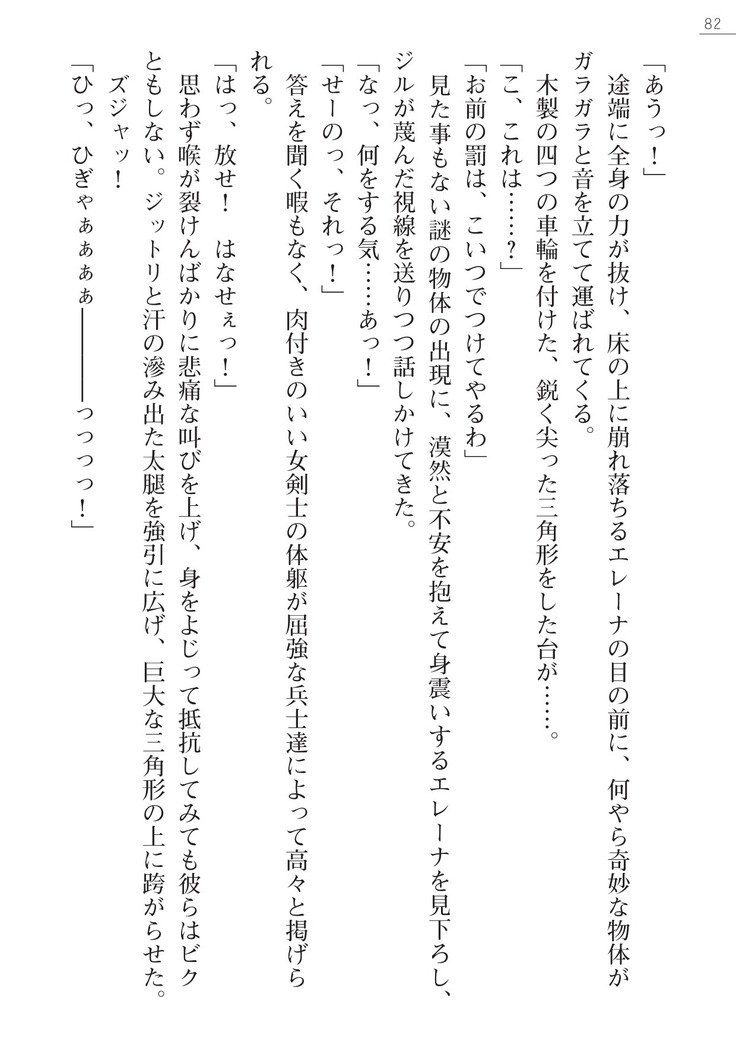 82
「あうっ！」
　途端に全身の力が抜け、床の上に崩れ落ちるエレーナの目の前に、何やら奇妙な物体が
ガラガラと音を立てて運ばれてくる。
　木製の四つの車輪を付けた、鋭く尖った三角形をした台が……。
「こ、これは……？」
「お前の罰は、こいつでつけてやるわ」
　見た事もない謎の物体の出現に、漠然と不安を抱えて身震いするエレーナを見下ろし、
ジルが蔑んだ視線を送りつつ話しかけてきた。
「なっ、何をする気……あっ！」
「せーのっ、それっ！」
　答えを聞く暇もなく、肉付きのいい女剣士の体躯が屈強な兵士達によって高々と掲げら
れる。
「はっ、放せ！　はなせぇっ！」
　思わず喉が裂けんばかりに悲痛な叫びを上げ、身をよじって抵抗してみても彼らはビク
ともしない。ジットリと汗の滲み出た太腿を強引に広げ、巨大な三角形の上に跨がらせた。
　ズジャッ！
「ひっ、ひぎゃぁぁぁぁ――――っっっっ！」